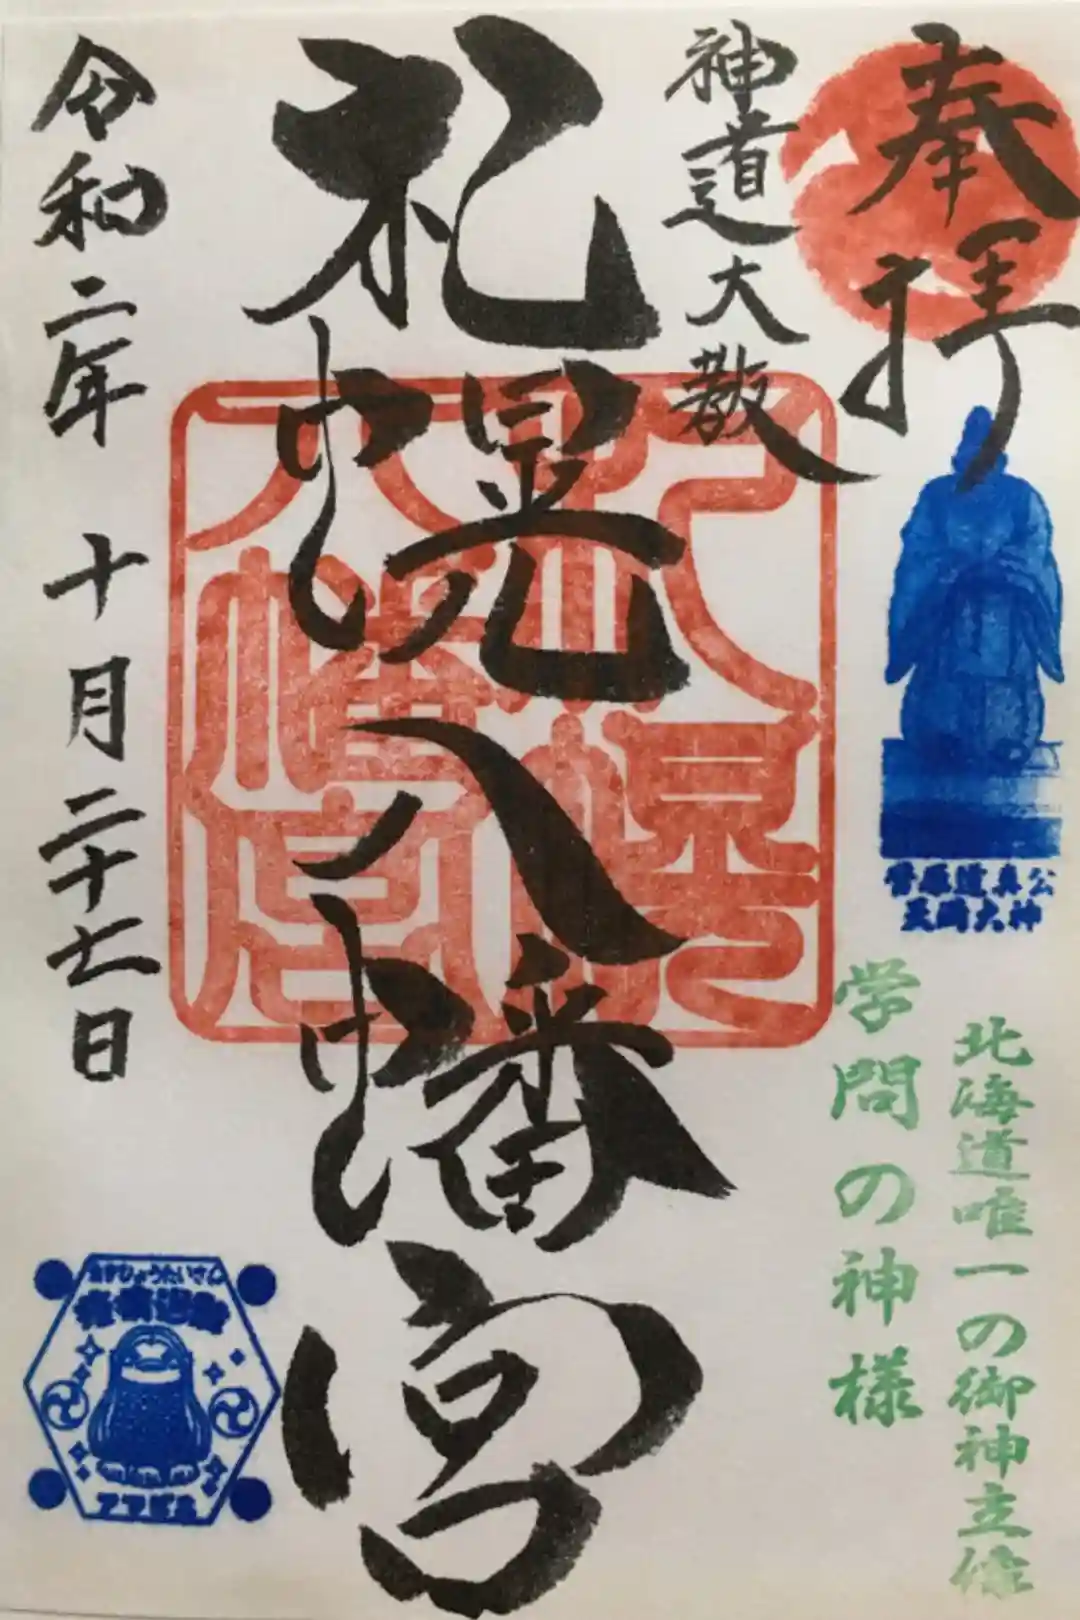 奉拝
神道大教
札幌八幡宮
令和二年 十月二十七日
札幌
八幡宮
菅原道真公
天満大神
北海道唯一の御神立像
学問の神様
アマビエ